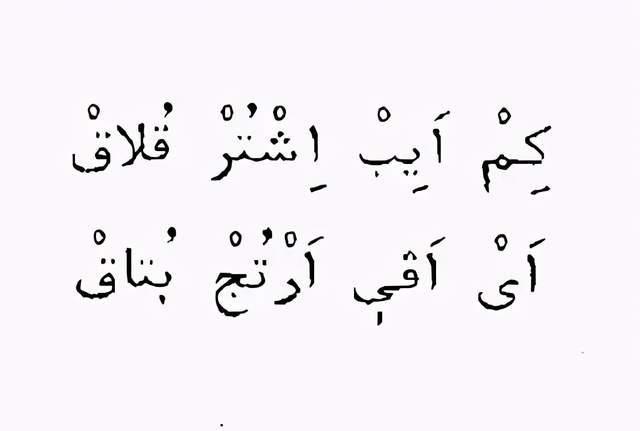 كِمْ اَيِبْ اِشْتُرْ قُلاقْ
اَىْ اَقِي اَرْتُجْ بُتاقْ